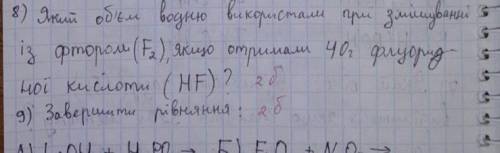 8) Який об'єм водню використали при змішуванні
із фтором (F₂), якщо отримали 40г флуорид-
ної кислоти (HF)? 2б
9) Завершити рівняння: 2б